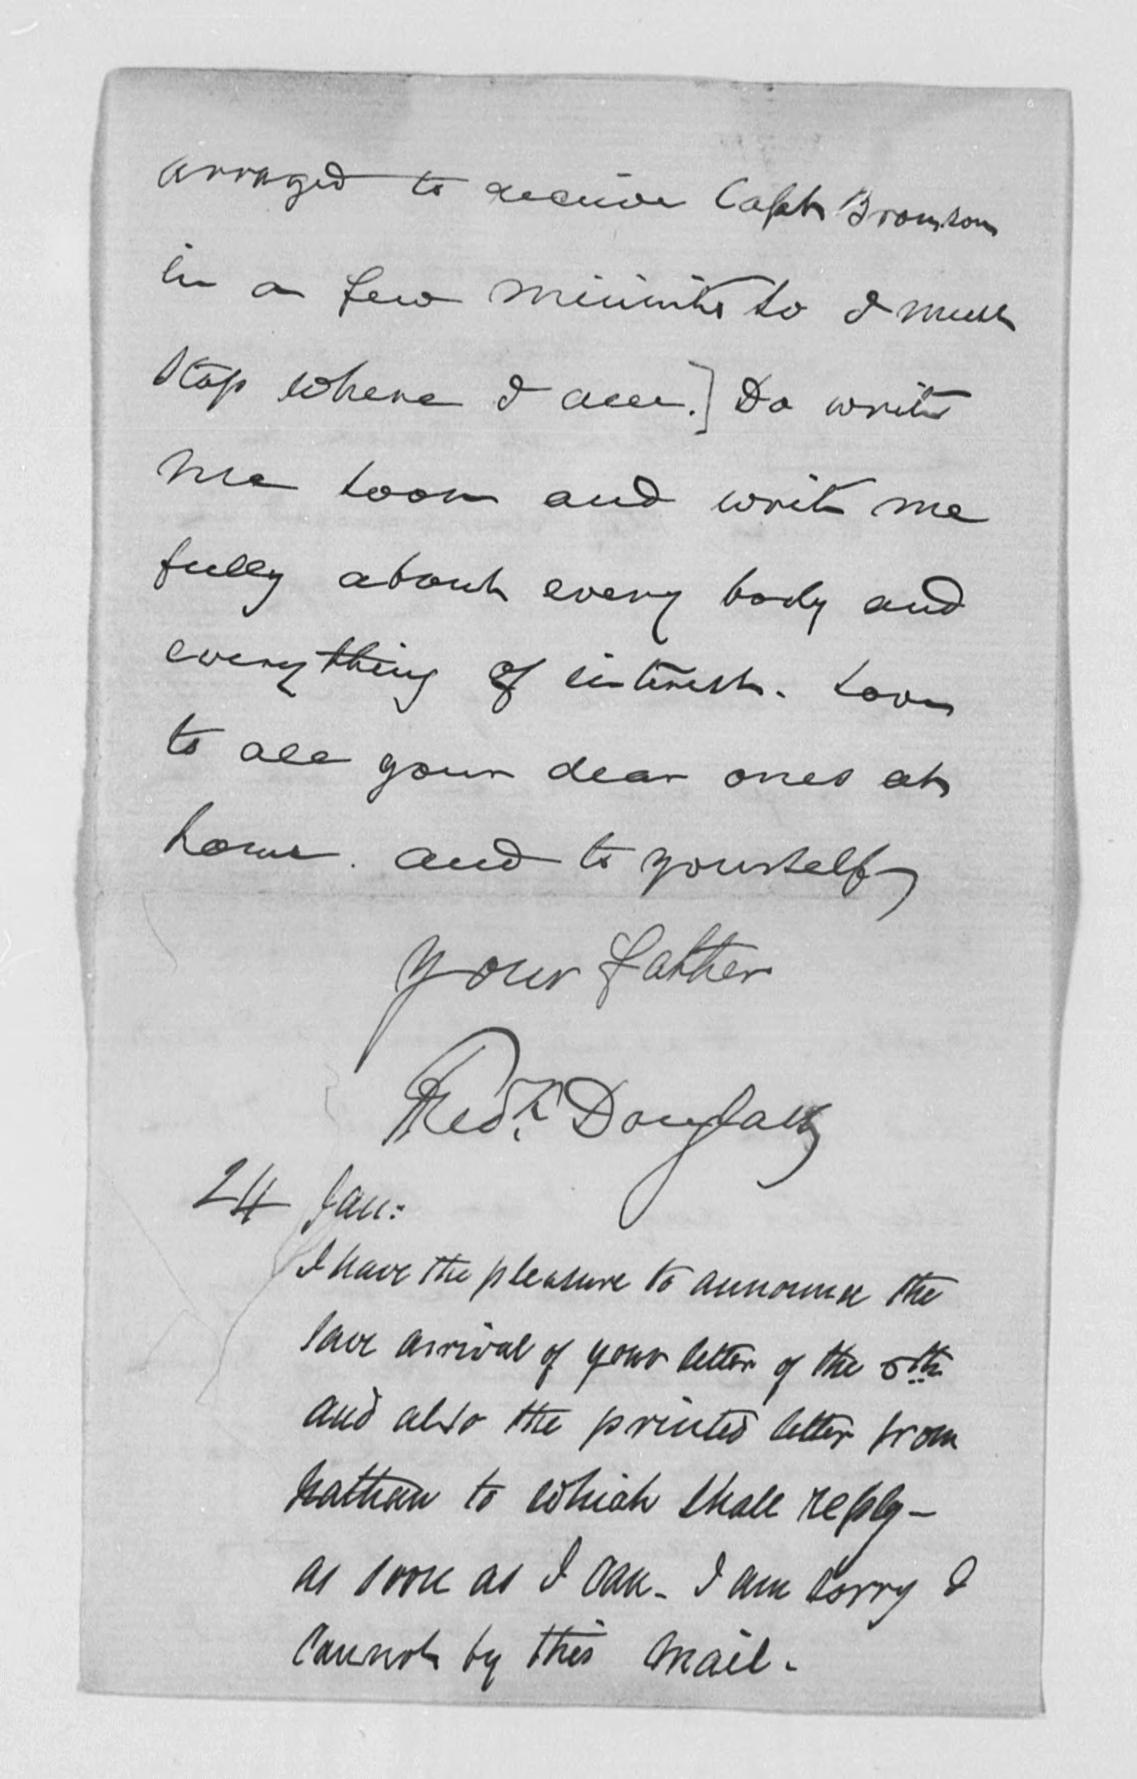 arraged to receive Capt Bromson
in a few minuites so I must
stop where I am.] Do write
me soon and write me
fully about every body and
everything of interest. Love
to all your dear ones at
home. and to yourself
your father
Fredk Douglass
24 Jan:
I have the pleasure to announce the
save arrival of your letter of the 5th
and also the printed letter from
Nathan to which shall reply—
as soon as I can - I am sorry I
cannot by this mail.